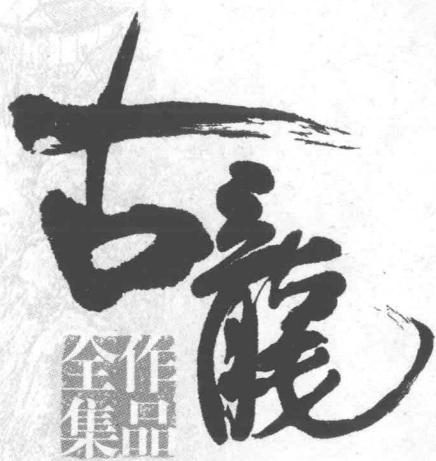 古龍
作品全集